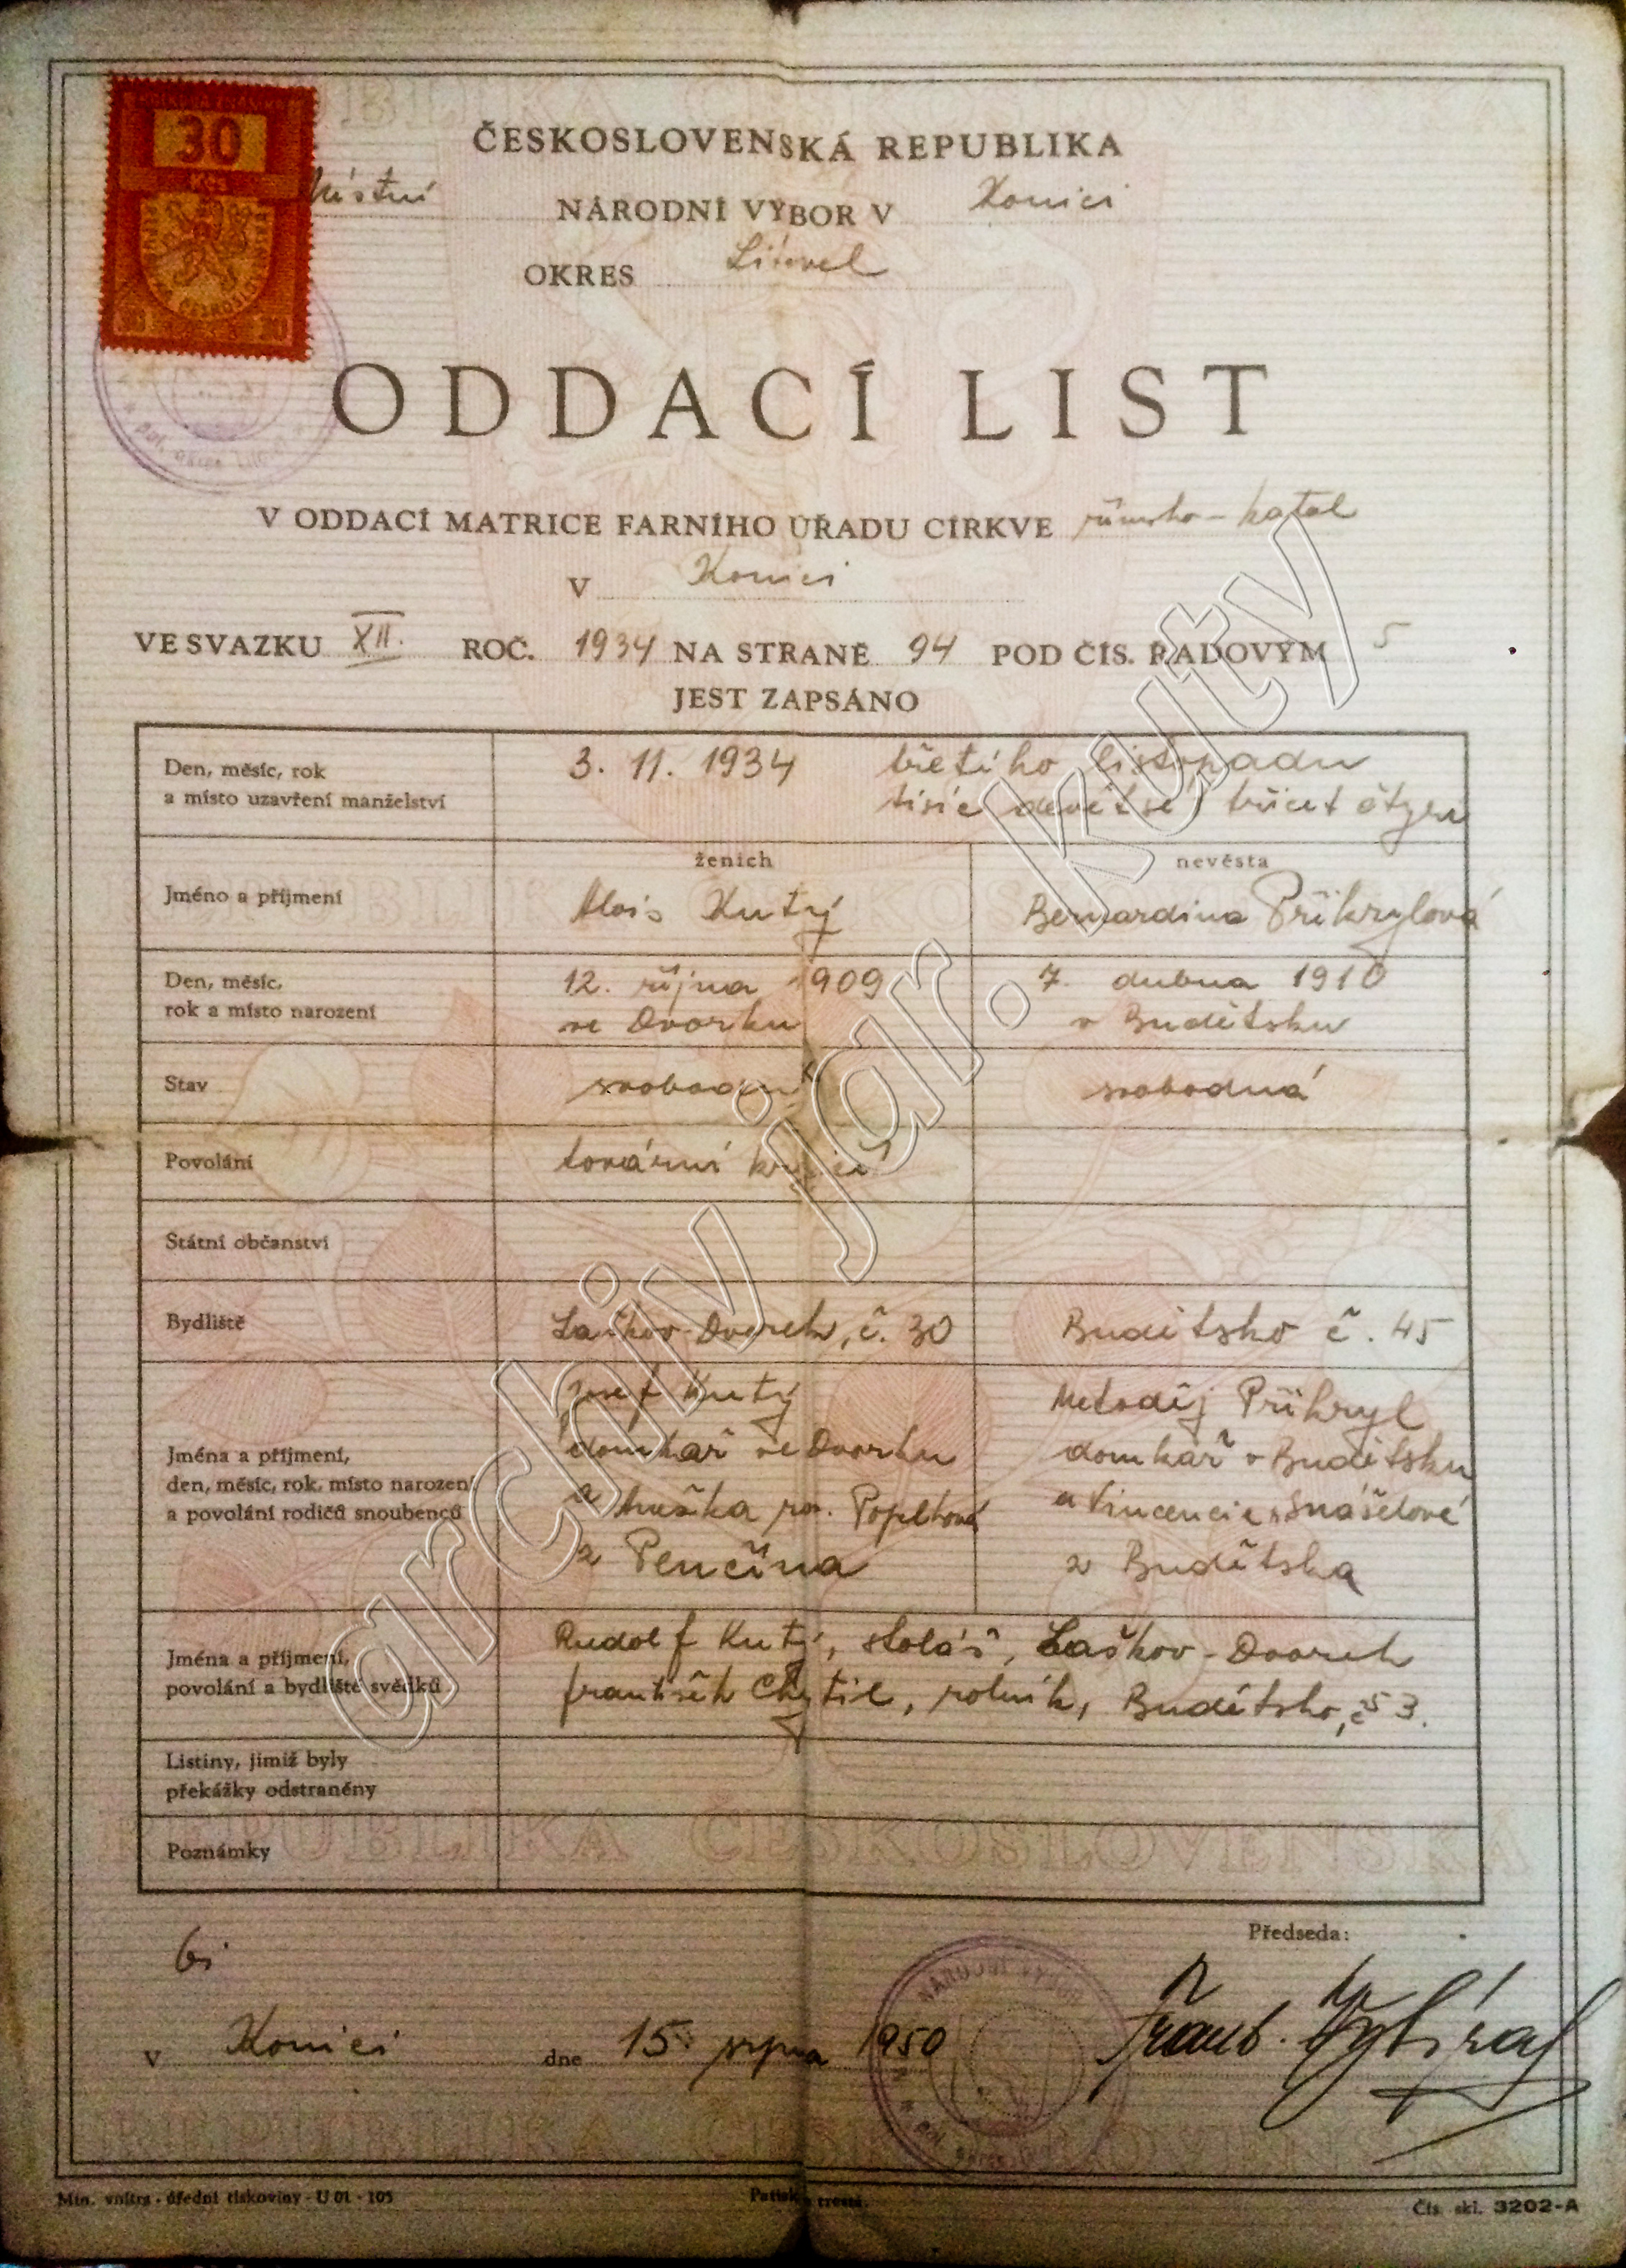 KOLKOVÁ ZNÁMKA
30
Kčs
ČESKOSLOVENSKÁ REPUBLIKA
Místní NÁRODNÍ VÝBOR V Konici
OKRES Litovel
ODDACÍ LIST
V ODDACÍ MATRICE FARNÍHO ÚŘADU CÍRKVE římsko-katol
V Konici
VE SVAZKU XII. ROČ. 1934 NA STRANĚ 94 POD ČÍS. ŘADOVÝM 5
JEST ZAPSÁNO
Den, měsíc, rok
a místo uzavření manželství
3. 11. 1934 třetího listopadu
tisíc devětset třicet čtyři
ženich
nevěsta
Jméno a příjmení
Alois Kutý
Bernardina Přikrylová
Den, měsíc,
rok a místo narození
12. října 1909
ve Dvorku
7. dubna 1910
v Budětsku
Stav
svobodný
svobodná
Povolání
tovární krejčí
Státní občanství
Bydliště
Laškov-Dvorek, č. 30
Budětsko č. 45
Jména a příjmení,
den, měsíc, rok, místo narození
a povolání rodičů snoubenců
Josef Kutý
domkař ve Dvorku
a Anežka roz. Popelková
z Penčína
Metoděj Přikryl
domkář v Budětsku
a Vincencie Snášelové
z Budětska
Jména a příjmení,
povolání a bydliště svědků
Rudolf Kutý, stolář, Laškov-Dvorek
František Chytil, rolník, Budětsko, č 53.
Listiny, jimiž byly
překážky odstraněny
Poznámky
Předseda:
V Konici dne 15. srpna 1950
NÁRODNÍ VÝBOR
Min. vnitra - úřední tiskoviny - U 01 - 105
Čís. skl. 3202-A
archiv jar. kuty